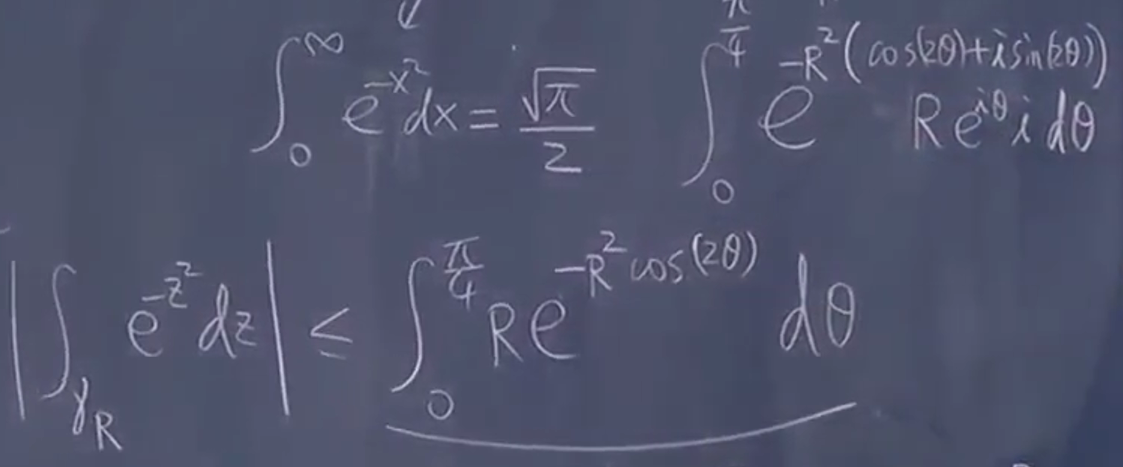 ∫_0^∞ e^{-x^2} dx = √π/2    ∫_0^{π/4} e^{-R^2(cos(2θ)+i sin(2θ))} R e^{iθ} i dθ
|∫_{γ_R} e^{-z^2} dz| ≤ ∫_0^{π/4} R e^{-R^2 cos(2θ)} dθ